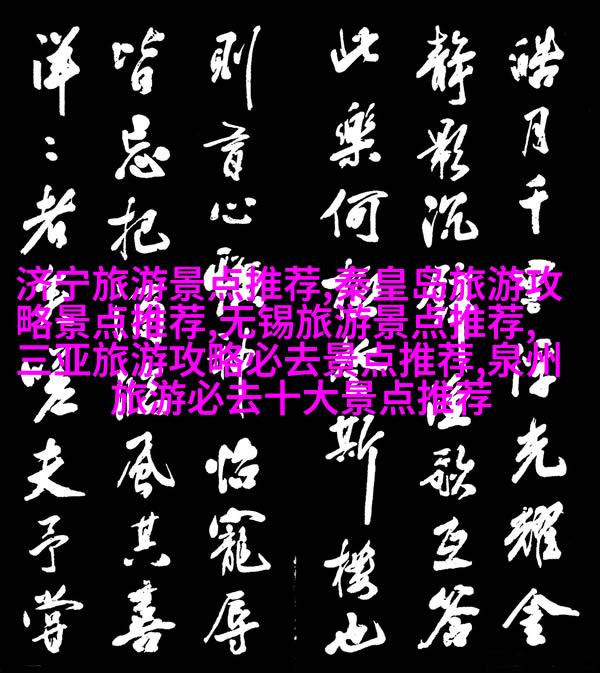 皓月千里浮光耀金
靜影沉璧漁歌互答
此樂何極登斯樓也
則有心曠神怡寵辱
皆忘把酒臨風其喜
洋:者矣嗟夫予嘗
济宁旅游景点推荐,秦皇岛旅游攻
略景点推荐,无锡旅游景点推荐,
三亚旅游攻略必去景点推荐,泉州
旅游必去十大景点推荐